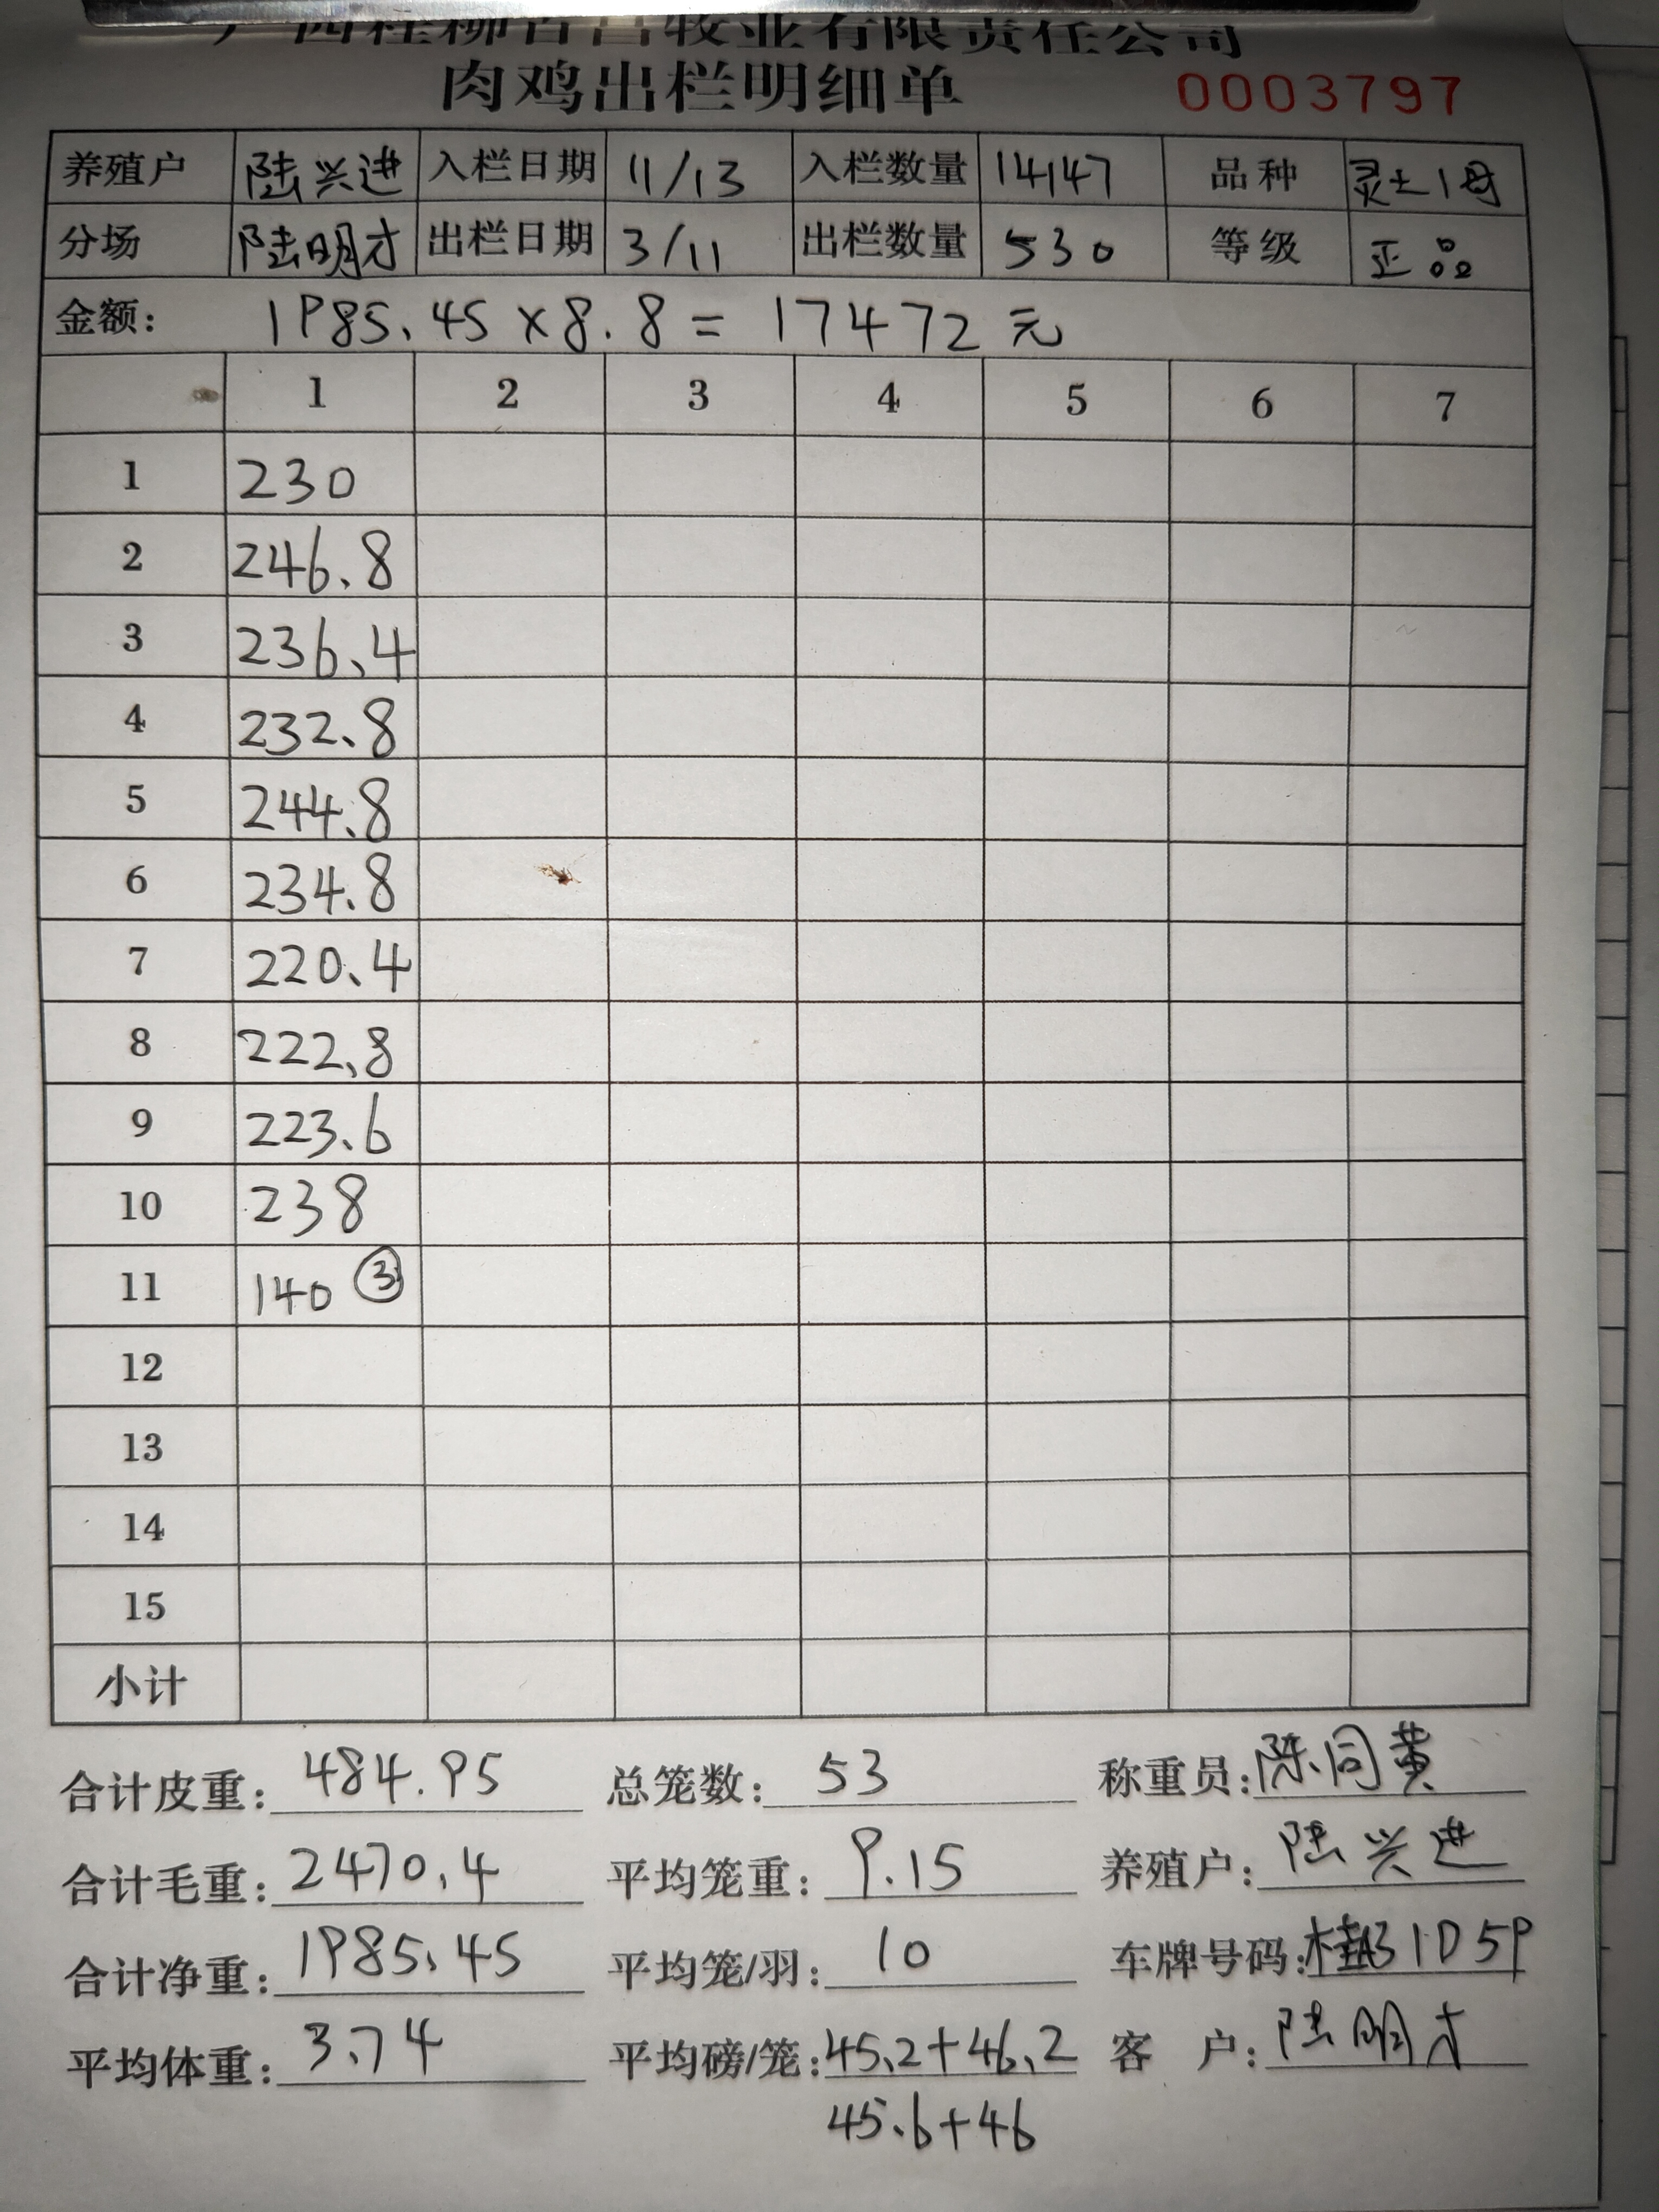 广西桂柳百昌牧业有限责任公司
肉鸡出栏明细单 0003797
养殖户 陆兴进 入栏日期 11/13 入栏数量 14147 品种 灵土1母
分场 陆明才 出栏日期 3/11 出栏数量 530 等级 正品
金额: 1985.45×8.8=17472元
1 2 3 4 5 6 7
1 230
2 246.8
3 236.4
4 232.8
5 244.8
6 234.8
7 220.4
8 222.8
9 223.6
10 238
11 140 ③
12
13
14
15
小计
合计皮重: 484.95 总笼数: 53 称重员: 陈同黄
合计毛重: 2470.4 平均笼重: 9.15 养殖户: 陆兴进
合计净重: 1985.45 平均笼/羽: 10 车牌号码:
平均体重: 3.74 平均磅/笼: 45.2+46.2 客户: 陆明才
45.6+46